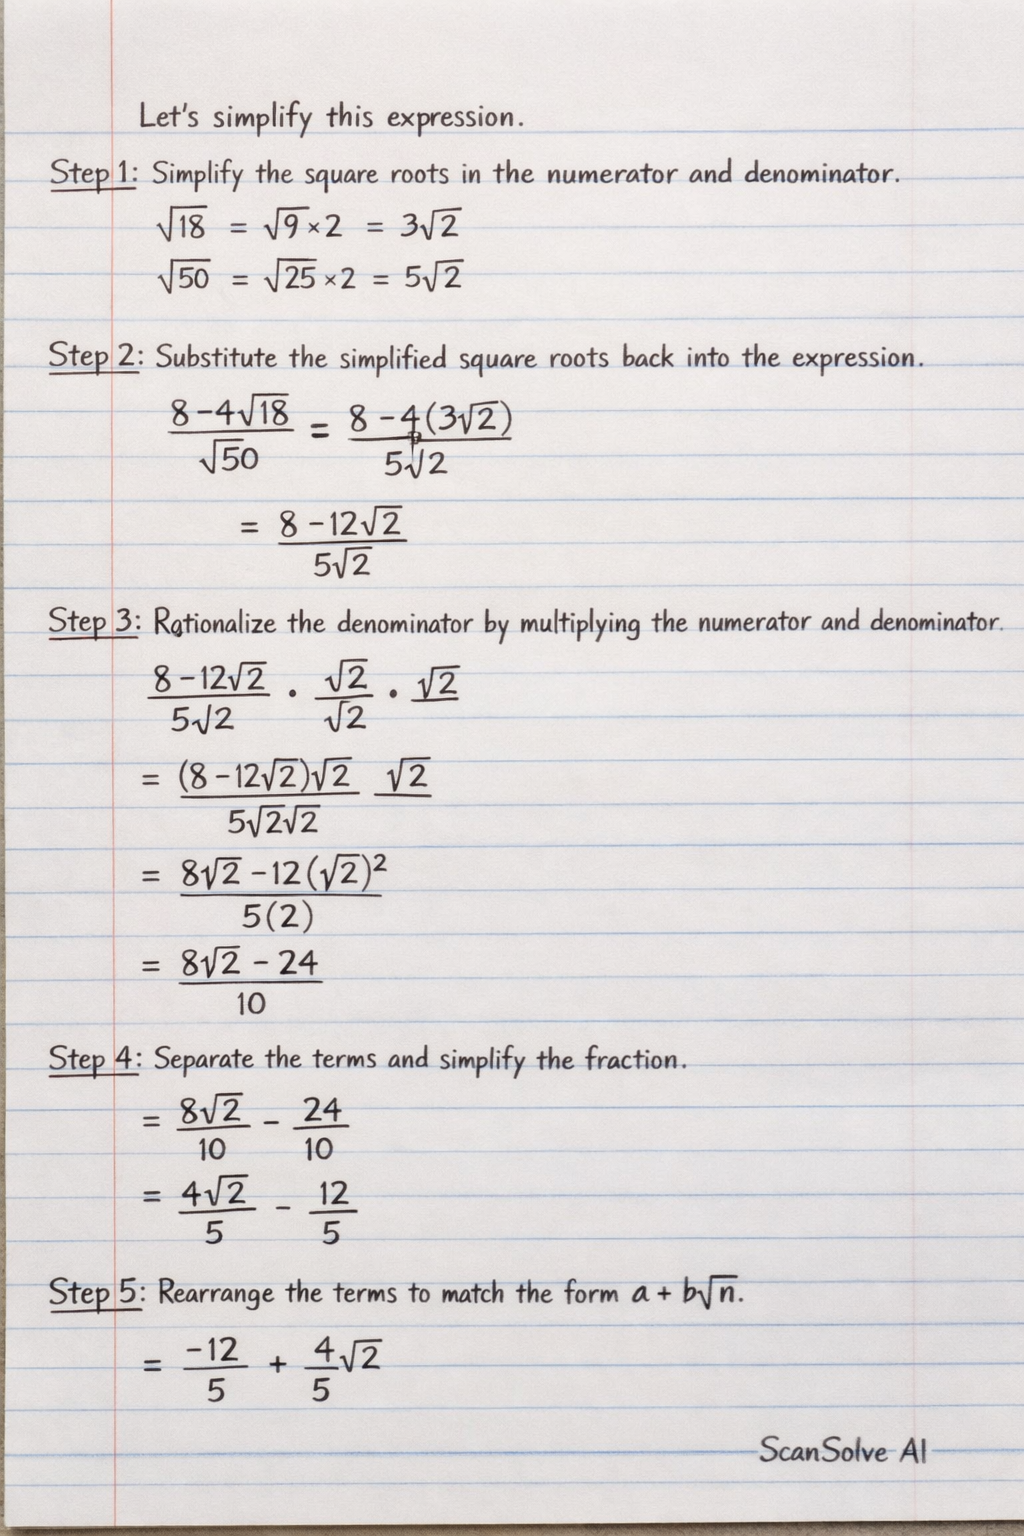 Let's simplify this expression.
Step 1: Simplify the square roots in the numerator and denominator.
√18 = √9×2 = 3√2
√50 = √25×2 = 5√2
Step 2: Substitute the simplified square roots back into the expression.
8-4√18 / √50 = 8-4(3√2) / 5√2
= 8-12√2 / 5√2
Step 3: Rationalize the denominator by multiplying the numerator and denominator.
8-12√2 / 5√2 · √2 / √2 · √2
= (8-12√2)√2 / 5√2√2 √2
= 8√2 - 12(√2)² / 5(2)
= 8√2 - 24 / 10
Step 4: Separate the terms and simplify the fraction.
= 8√2 / 10 - 24 / 10
= 4√2 / 5 - 12 / 5
Step 5: Rearrange the terms to match the form a + b√n.
= -12 / 5 + 4 / 5 √2
ScanSolve AI